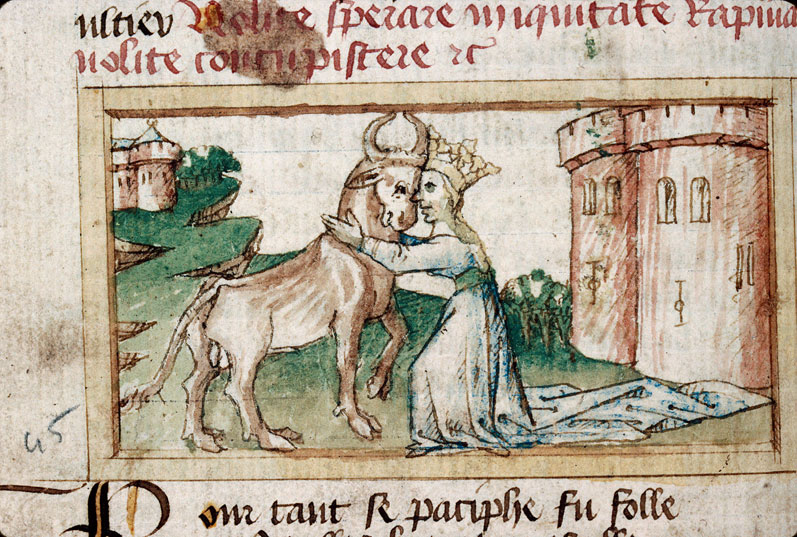 ultieu Nolite sperare iniquitate Rapina
nolite concupistere rc
45
Pour tant se paciphe fu folle